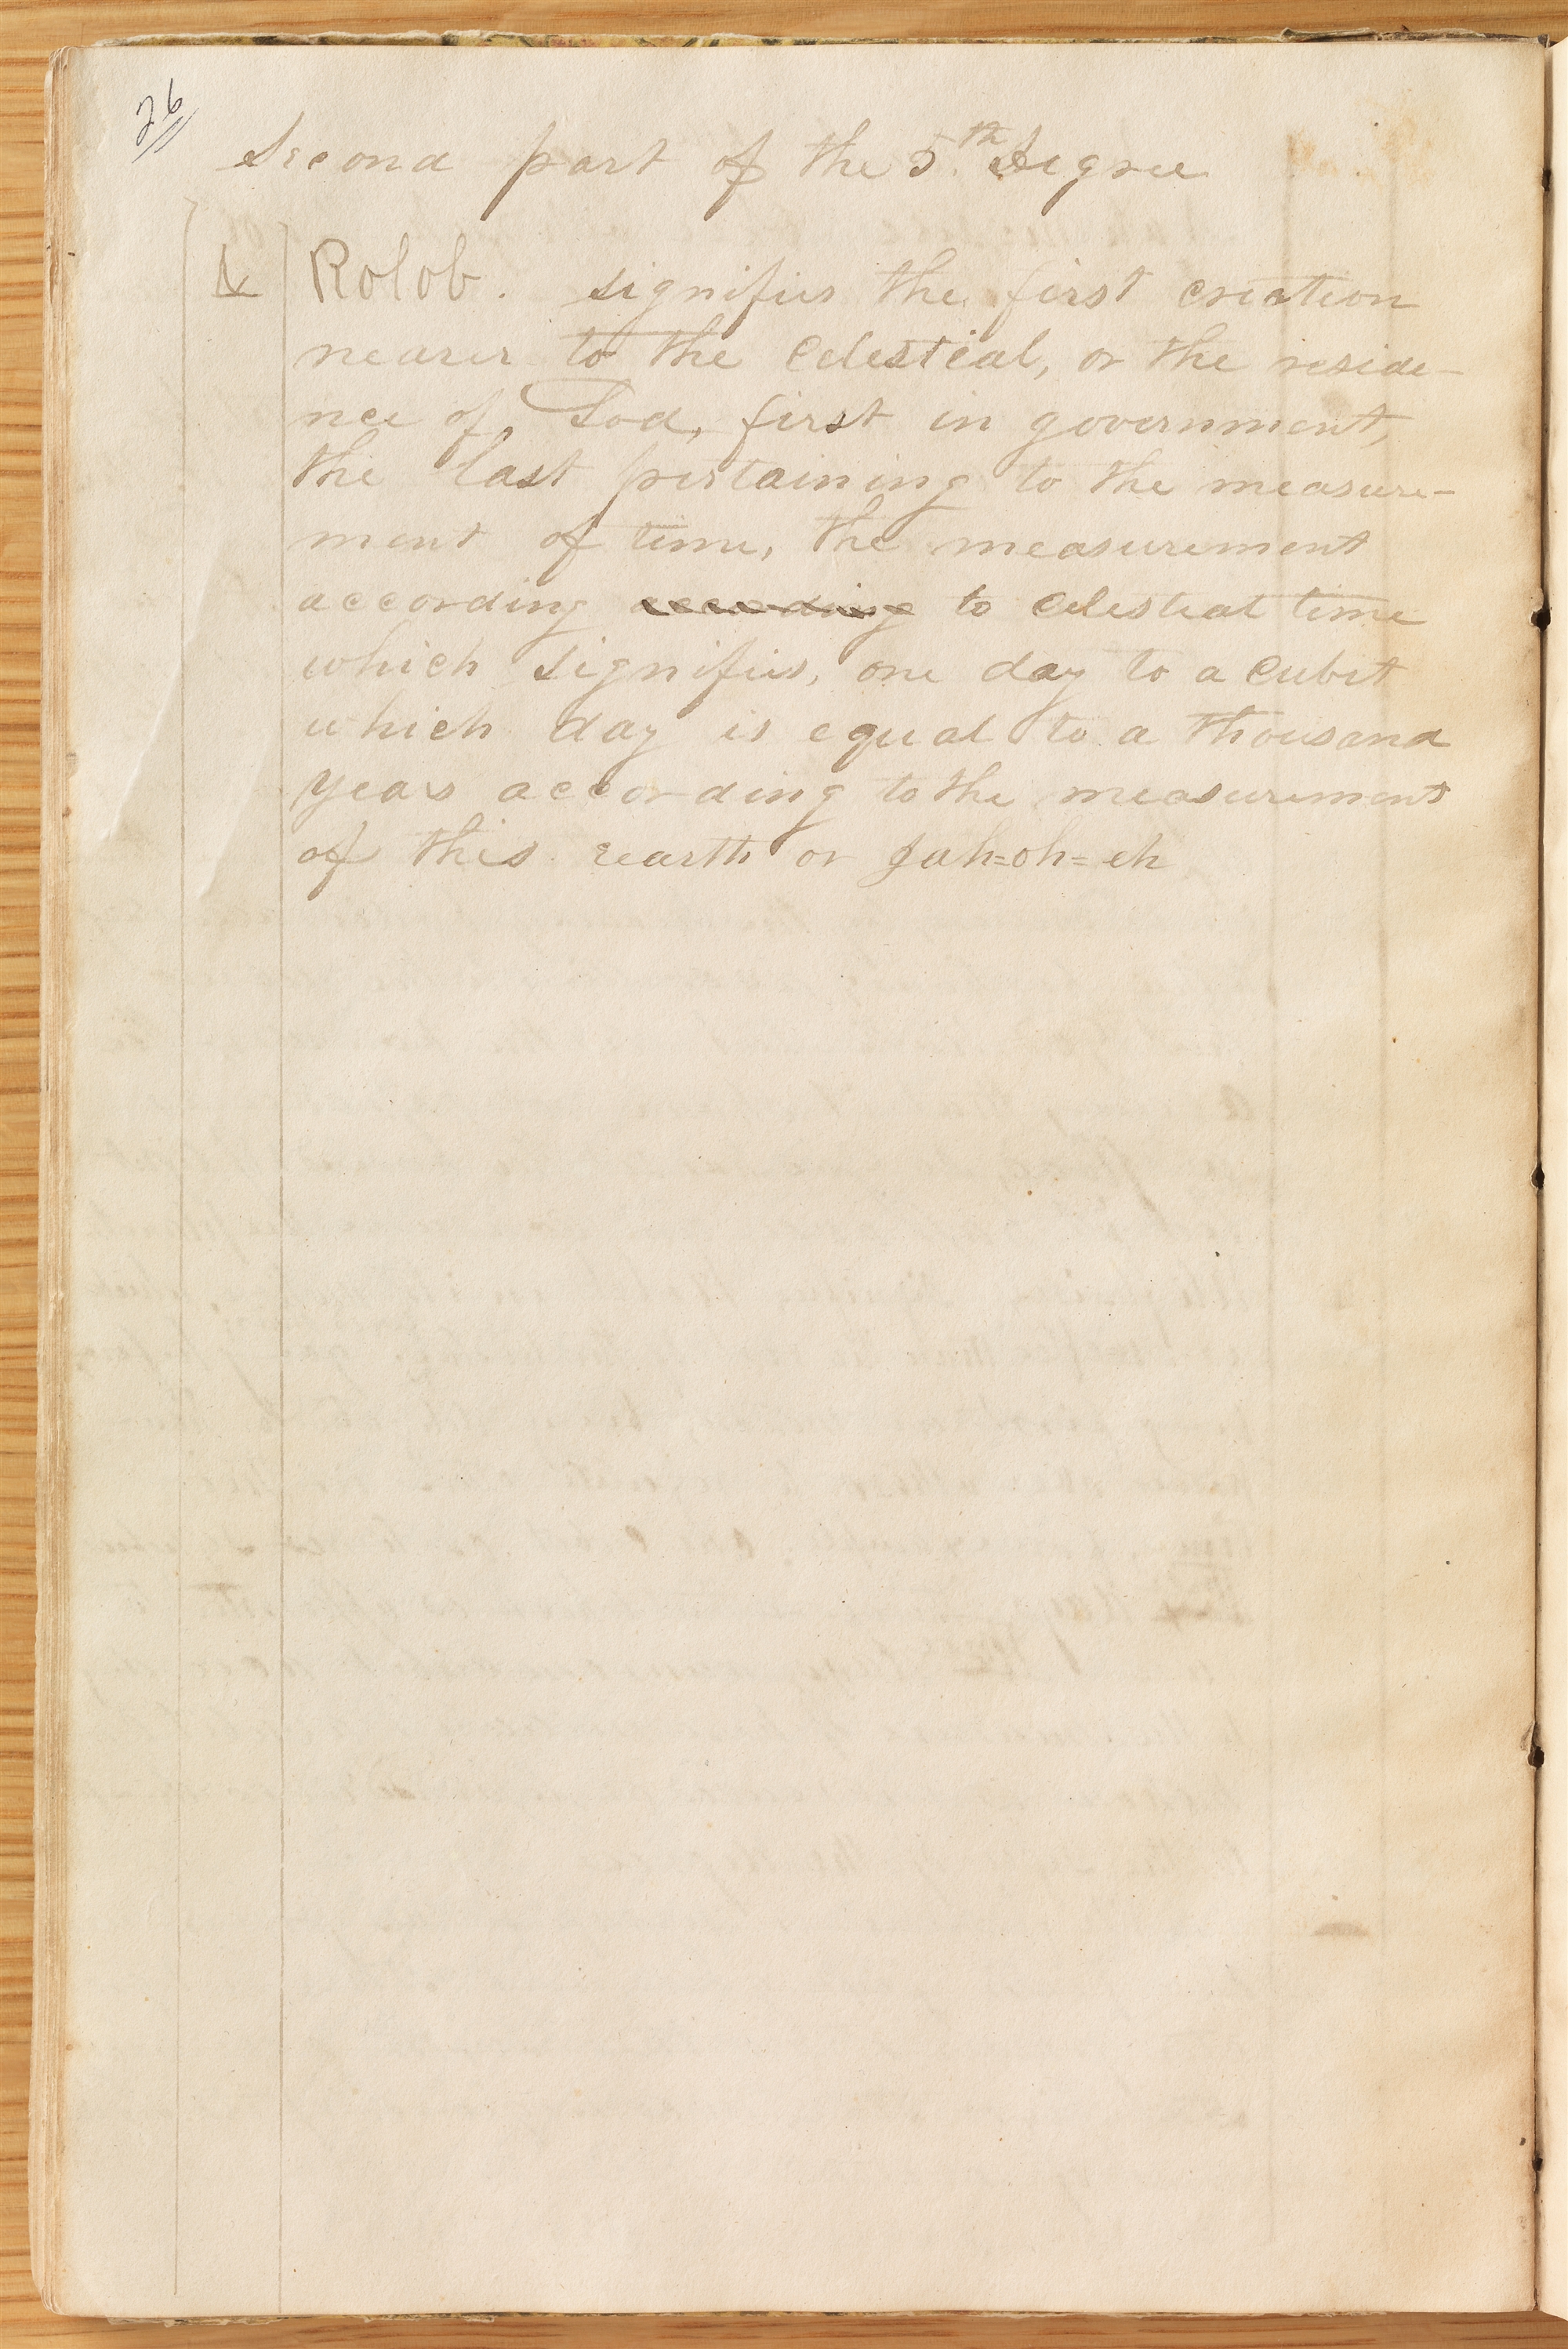 26
Second part of the 5.th Degree
Kolob. signifies the first creation
nearer to the Celestial, or the reside-
nce of God, first in government,
the last pertaining to the measure-
ment of time, the measurement
according according to Celestial time
which signifies, one day to a cubit
which day is equal to a thousand
years according to the measurement
of this earth or Jah=oh=eh